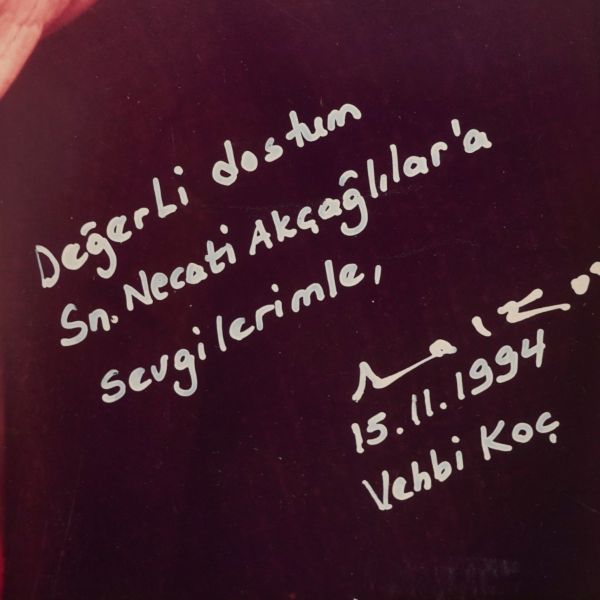 Değerli dostum
Sn. Necati Akçağlılar'a
sevgilerimle,
15.11.1994
Vehbi Koç